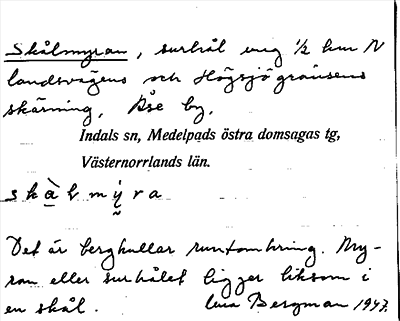 Skålmyran, surhål ung. ½ km N
landsvägens och Högsjögränsens
skärning, Åse by,
Indals sn, Medelpads östra domsagas tg,
Västernorrlands län.
skàlmýra
Det är bergkullar runtomkring. My-
ran eller surhålet ligger liksom i
en skål. Bergman 1943.